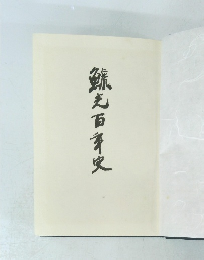 鯱光百年史